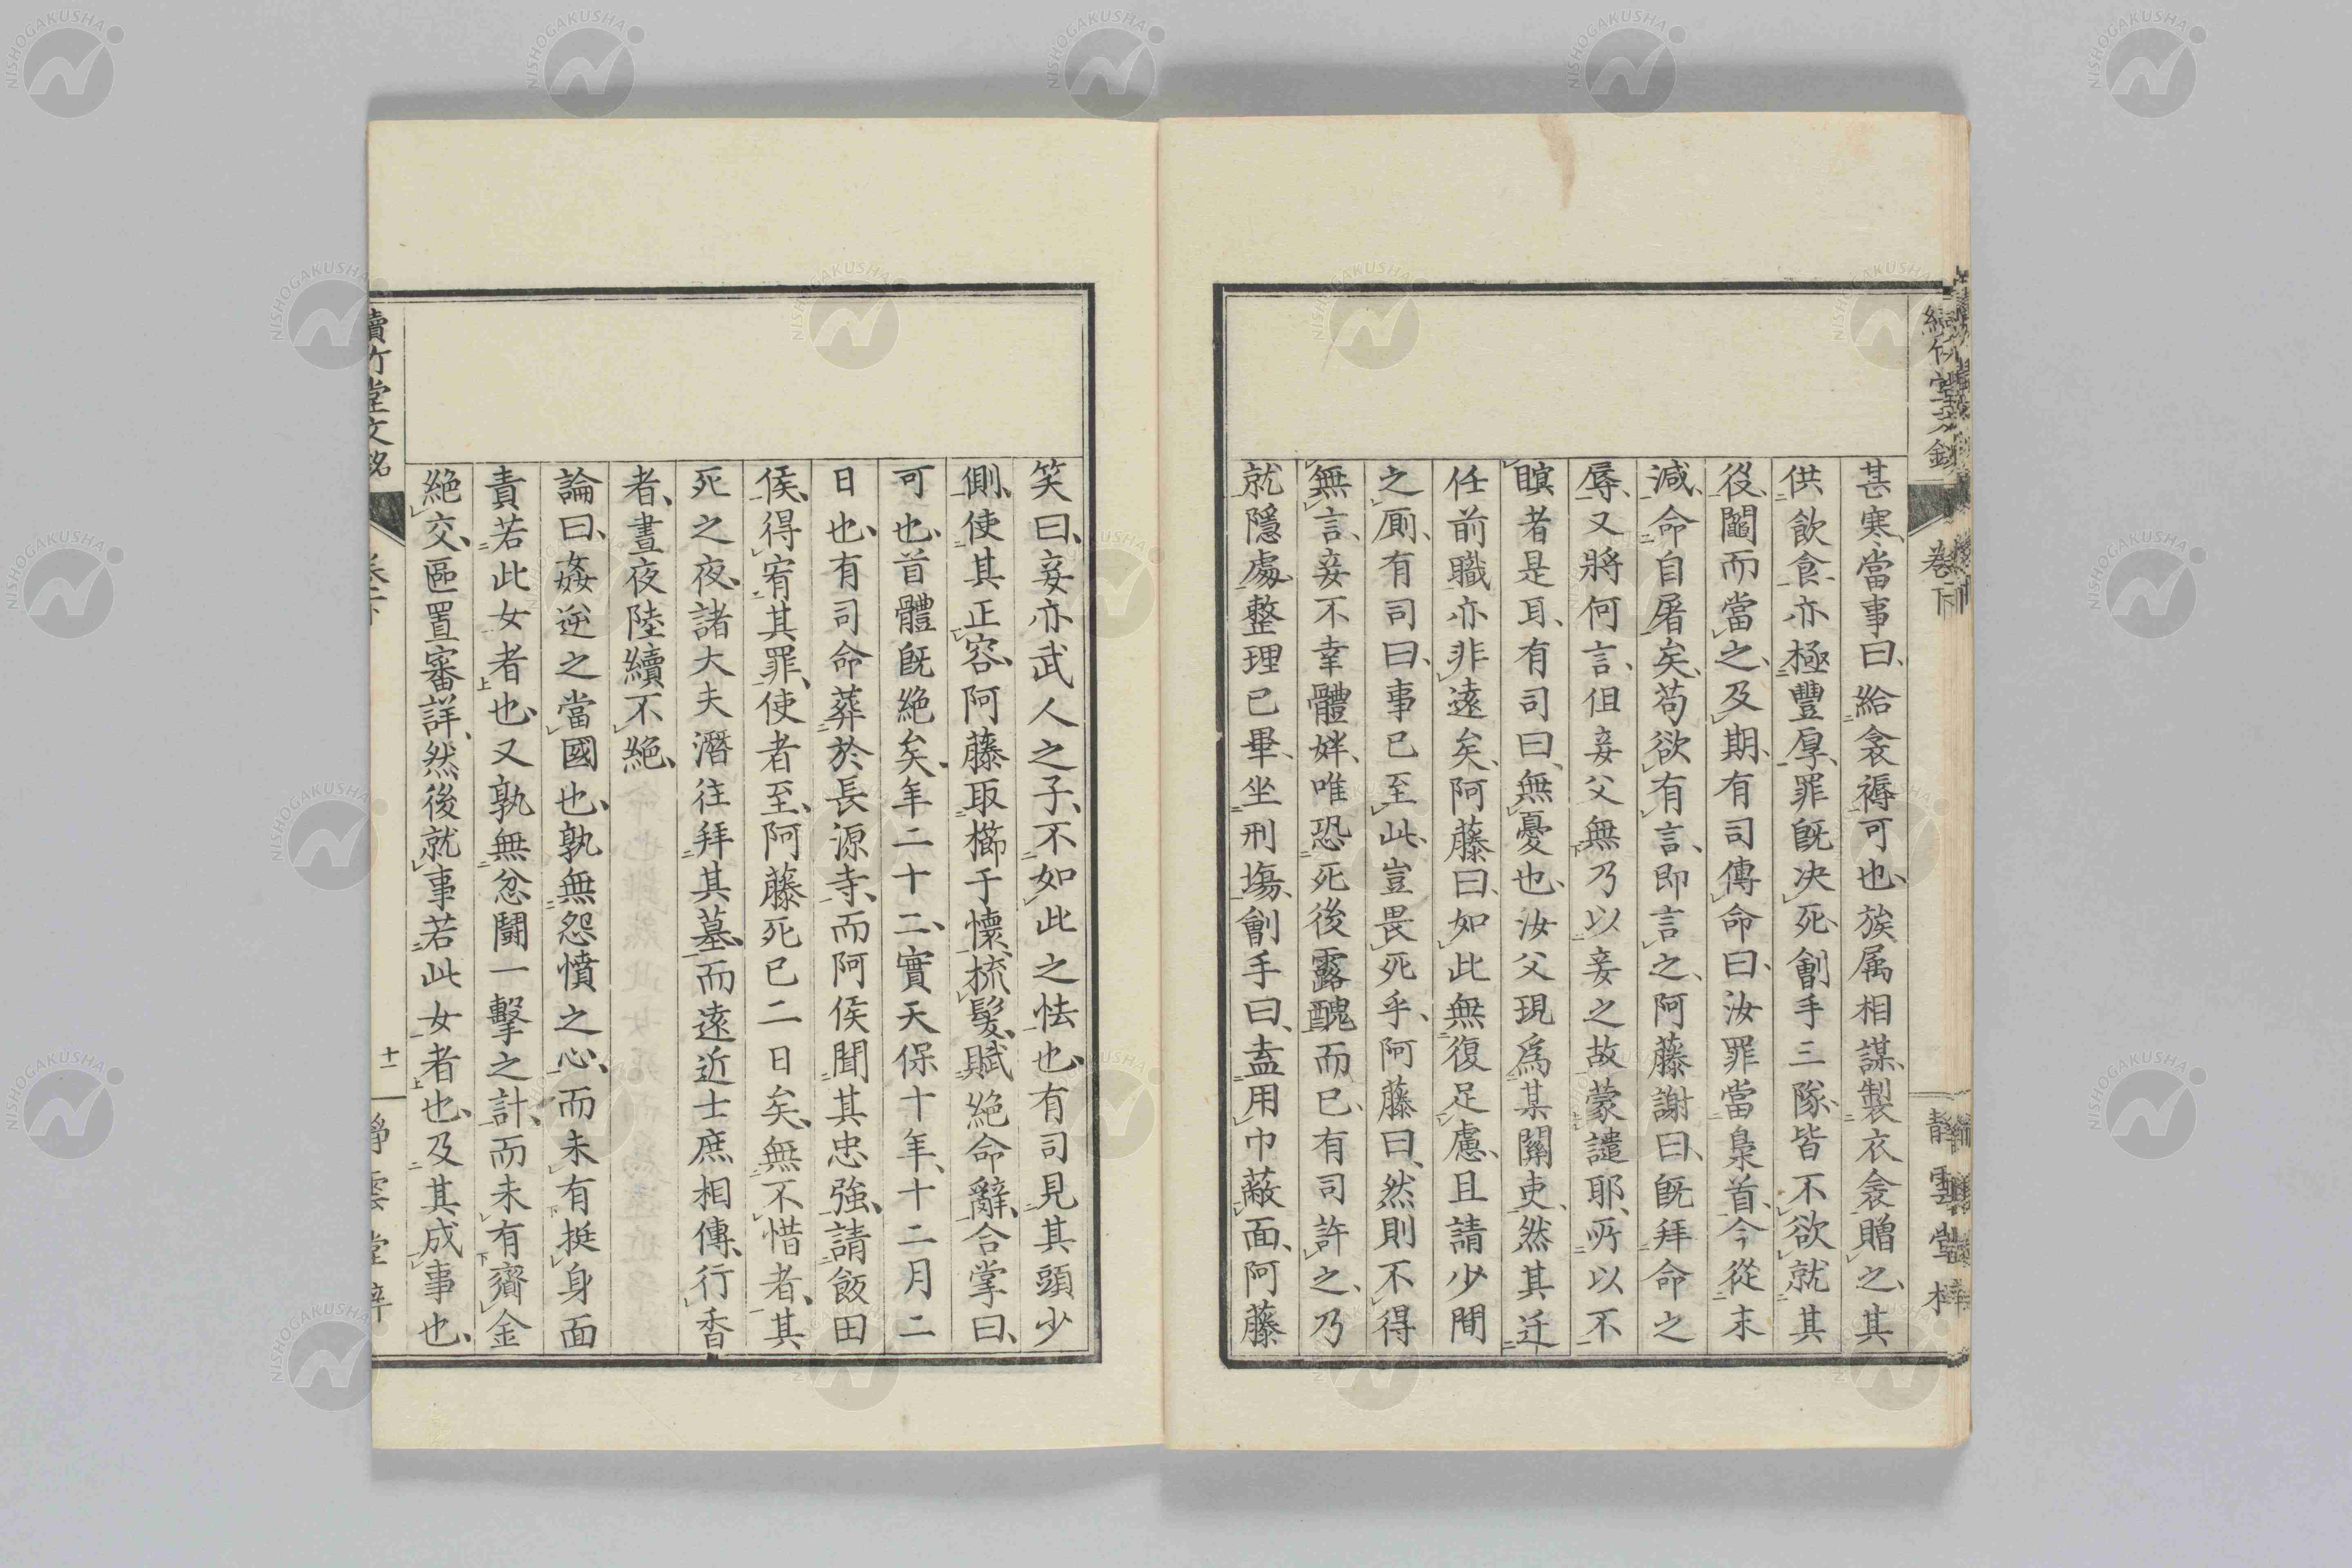 甚寒、當事曰、給衾褥可也、族属相謀、製衣衾贈之、其
供飲食、亦極豐厚、罪旣决死、劊手三隊、皆不欲就其
役、鬮而當之、及期、有司傳命曰、汝罪當梟首、今從末
減、命自屠矣、苟欲有言、即言之、阿藤謝曰、旣拜命之
辱、又將何言、但妾父無乃以妾之故蒙譴耶、所以不
瞑者是耳、有司曰、無憂也、汝父現爲某關吏、然其迁
任前職亦非遠矣、阿藤曰、如此無復足慮、且請少間
之厠、有司曰、事已至此、豈畏死乎、阿藤曰、然則不得
無言、妾不幸體姅、唯恐死後露醜而已、有司許之、乃
就隱處、整理已畢、坐刑塲、劊手曰、盍用巾蔽面、阿藤
笑曰、妾亦武人之子、不如此之怯也、有司見其頭少
側、使其正容、阿藤取櫛于懷、梳髮、賦絕命辭、合掌曰、
可也、首體旣絕矣、年二十二、實天保十年、十二月二
日也、有司命葬於長源寺、而阿侯聞其忠強、請飯田
侯、得宥其罪、使者至、阿藤死已二日矣、無不惜者、其
死之夜、諸大夫潛往拜其墓、而遠近士庶相傳、行香
者、晝夜陸續不絕、
論曰、姦逆之當國也、孰無怨憤之心、而未有挺身面
責若此女者也、又孰無忿鬪一擊之計、而未有齎金
絕交、區置審詳、然後就事若此女者也、及其成事也、
續竹堂文鈔
卷下
十一
NISHOGAKUSHA